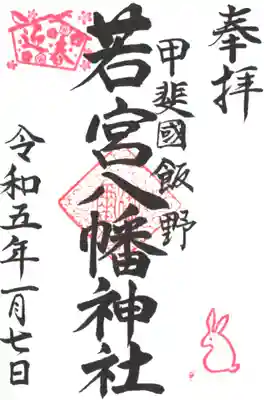 奉拝
甲斐國飯野
若宮八幡神社
令和五年一月七日
迎春